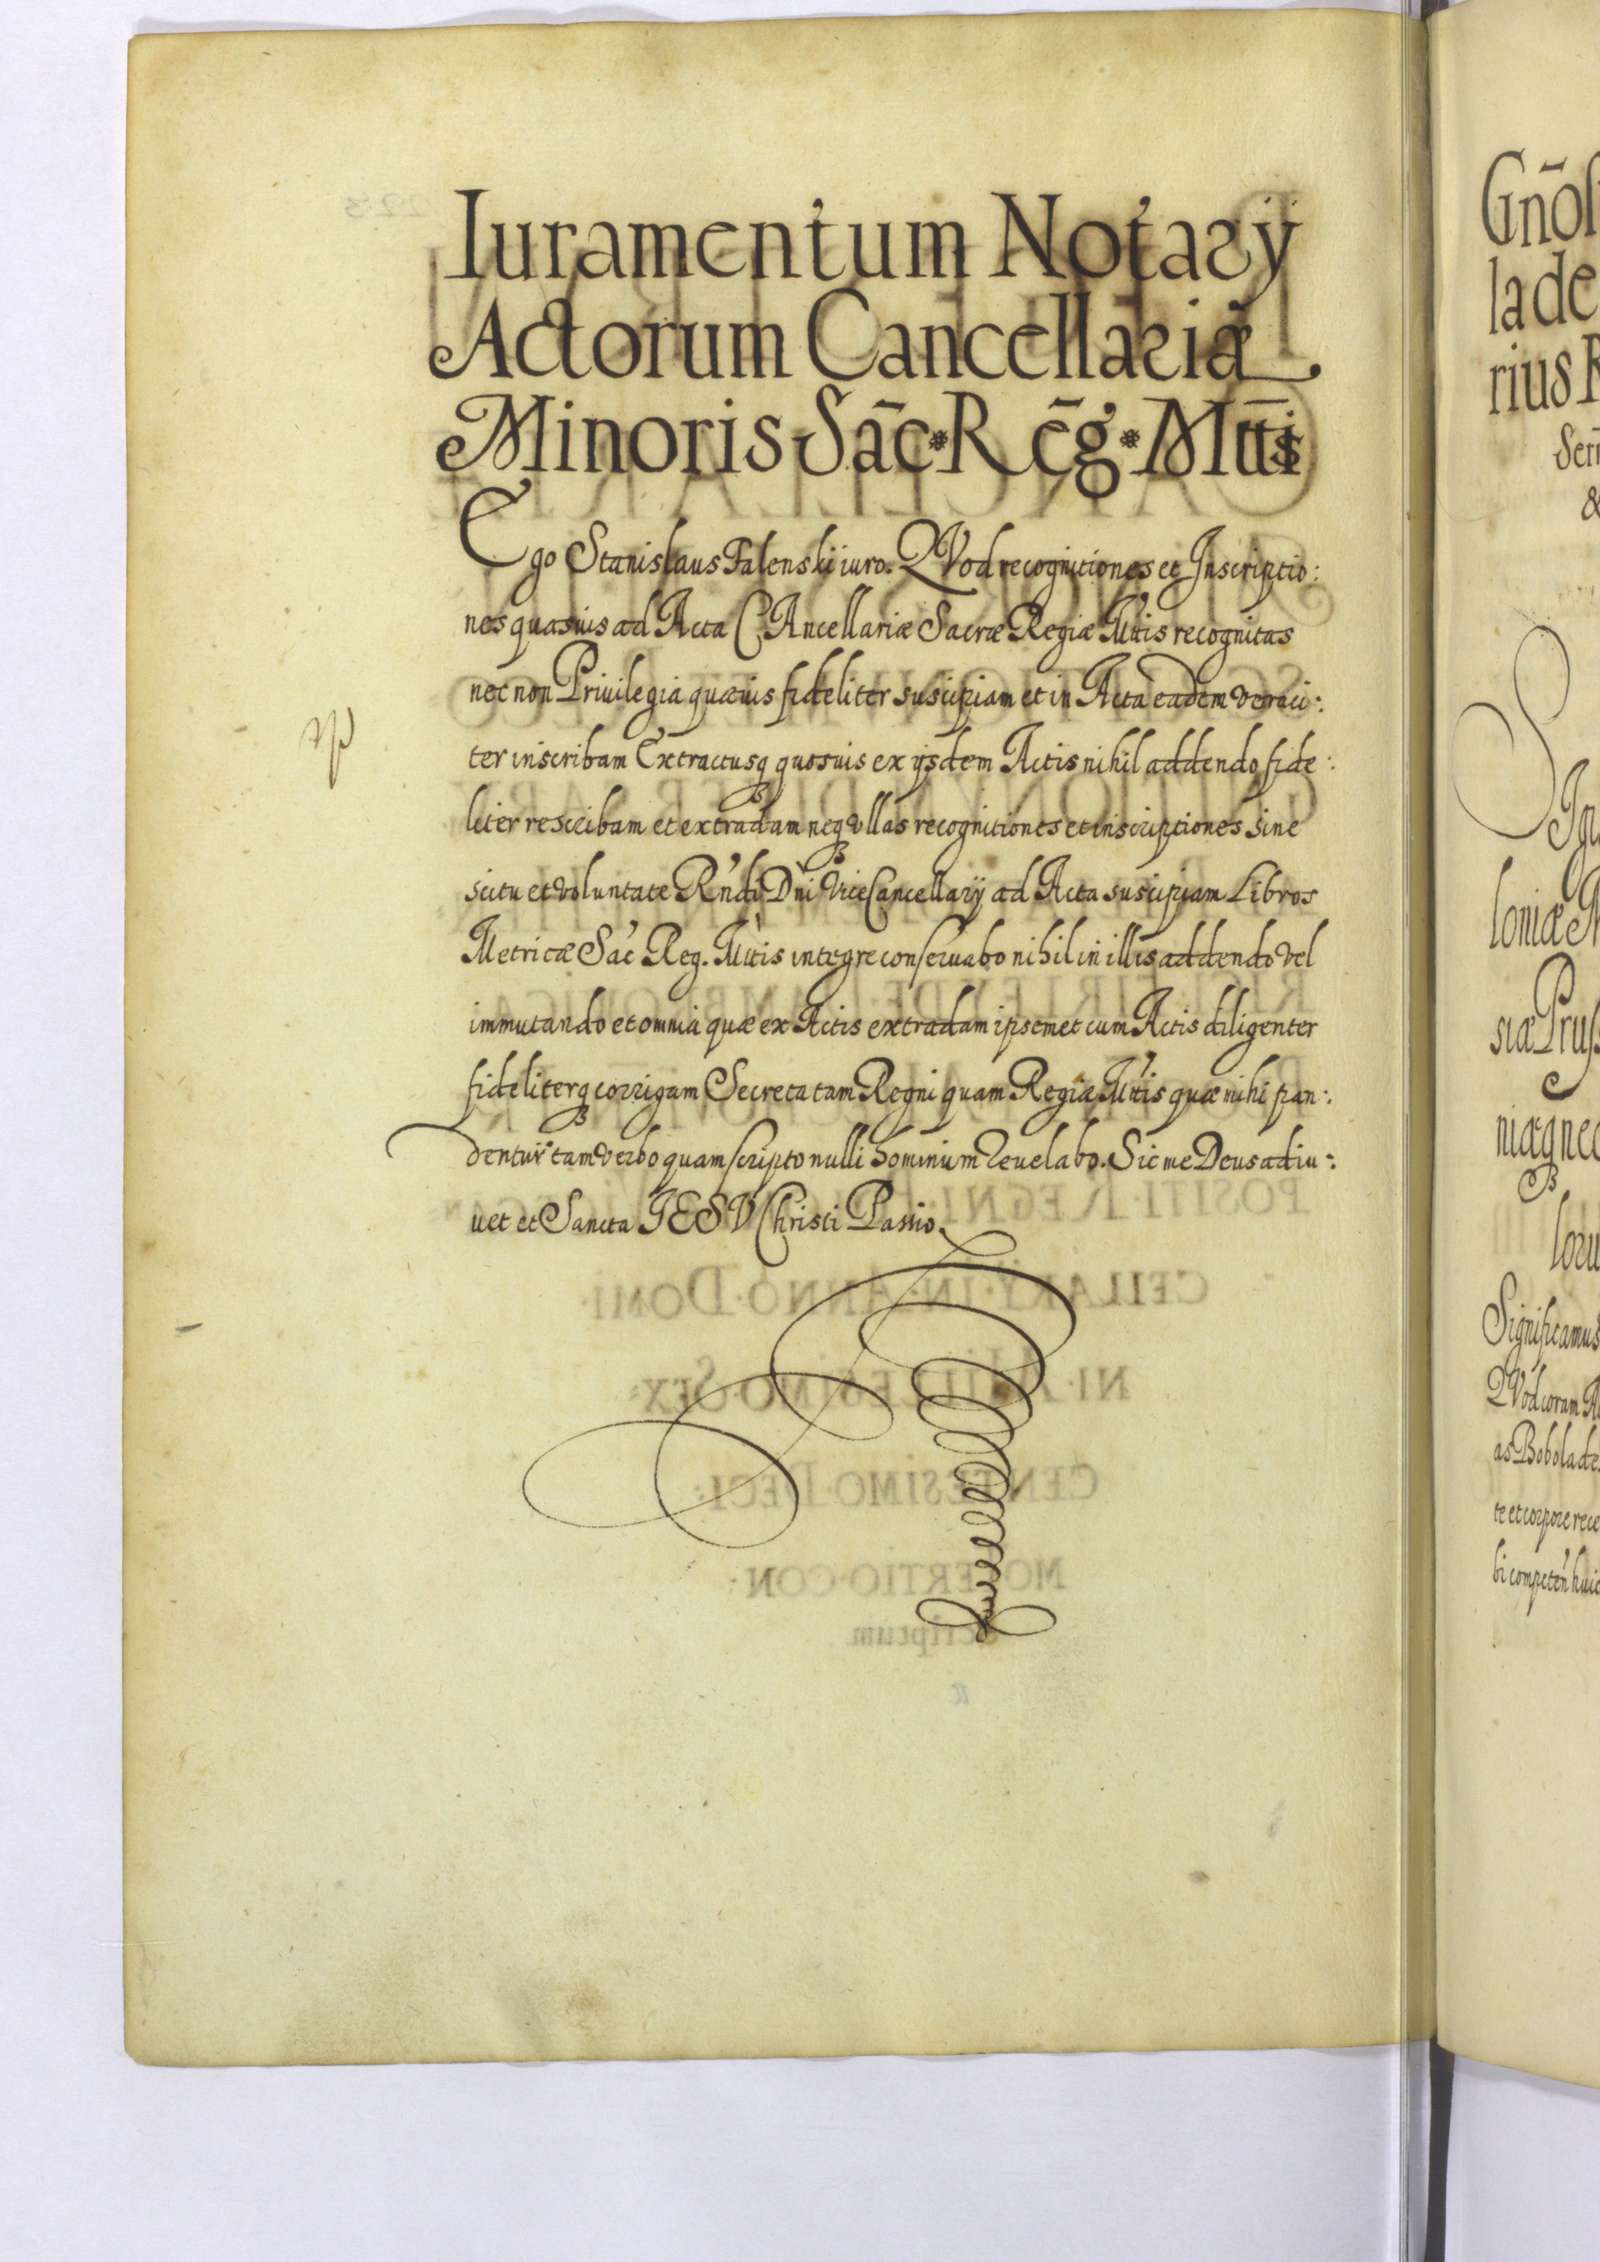 Iuramentum Notarÿ
Actorum Cancellariæ
Minoris Sac̄ * Reḡ * Mttis
Ego Stanislaus Falenski iuro. QVod recognitiones et Inscriptio:
nes quasuis ad Acta CAncellariæ Sacræ Regiæ Mttis recognitas
nec non Priuilegia quæuis fideliter suscipiam et in Acta eadem veraci:
ter inscribam Extractusq3 quosuis ex ijsdem Actis nihil addendo fide:
liter rescribam et extradam neq3 vllas recognitiones et inscriptiones sine
scitu et voluntate R'ndi D'ni ViceCancellarÿ ad Acta suscipiam Libros
Metricæ Sac' Reg. Mttis integre conseruabo nihil in illis addendo vel
immutando et omnia quæ ex Actis extradam ipsemet cum Actis diligenter
fideliterq3 corrigam Secreta tam Regni quam Regiæ Mttis quæ mihi pan:
dentur tam verbo quam scripto nulli hominum reuelabo. Sic me Deus adiu:
uet et Sancta IESV Christi Passio.
Gn̄os
la de
rius R
Serr̄
&
loniæ M
siæ Pruss
niæq3 nec
loru
Significamus
QVod coram A
as Bobola de
te et corpore rece
bi competen' huic